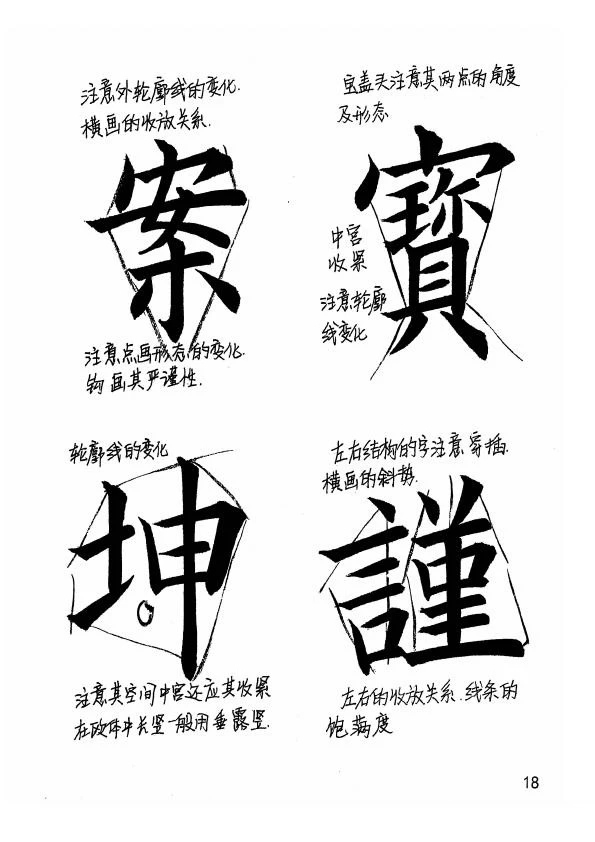 注意外轮廓线的变化.
横画的收放关系.
案
注意点画形态的变化.
钩画其严谨性.
宝盖头注意其两点的角度
及形态
寶
中宫
收紧
注意轮廓
线变化
轮廓线的变化
坤
注意其空间中宫还应其收紧
在欧体中长竖一般用垂露竖.
左右结构的字注意穿插.
横画的斜势.
謹
左右的收放关系.线条的
饱满度
18